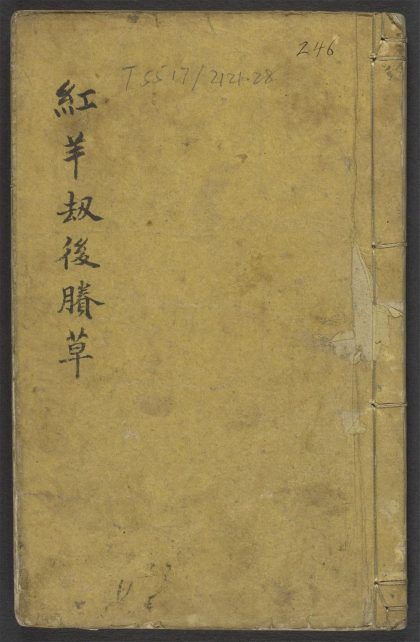 246
T5517/2121.28
紅羊刼後賸草